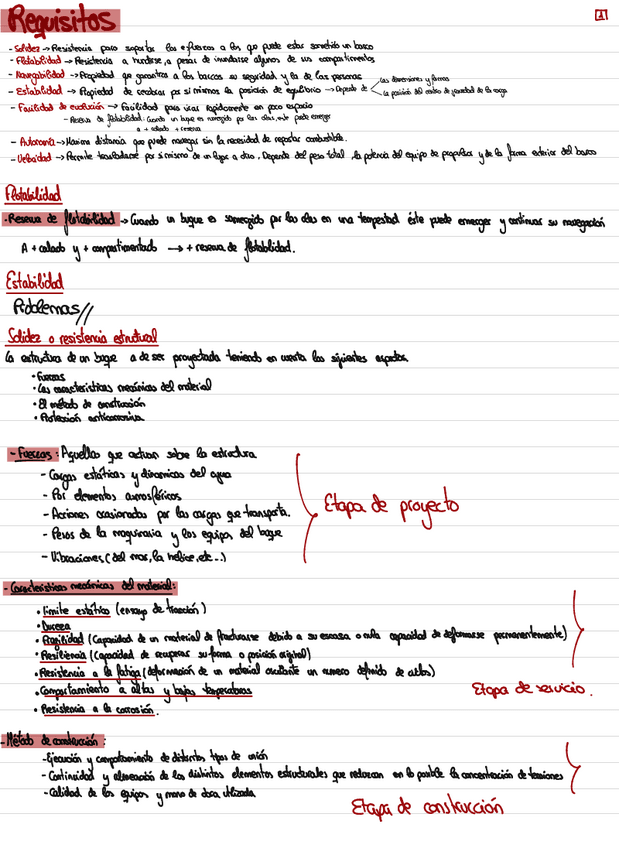 Requisitos
1
- Solidez → Resistencia para soportar los esfuerzos a los que puede estar sometido un barco
- Flotabilidad → Resistencia a hundirse, a pesar de inundarse algunos de sus compartimentos
- Navegabilidad → Propiedad que garantiza a los barcos su seguridad y la de las personas
- Estabilidad → Propiedad de recobrar por sí mismos la posición de equilibrio → Depende de
Las dimensiones y formas
La posición del centro de gravedad de la carga
- Facilidad de evolución → Facilidad para virar rapidamente en poco espacio
- Reserva de flotabilidad: Cuando un buque es sumergido por las olas, este puede emerger
a + calado + reserva
- Autonomía → Maxima distancia que puede navegar sin la necesidad de repostar combustible.
- Velocidad → Permite trasladarse por si mismo de un lugar a otro. Depende del peso total, la potencia del equipo de propulsor y de la forma exterior del barco
Flotabilidad
- Reserva de flotabilidad → Cuando un buque es sumergido por las olas en una tempestad éste puede emerger y continuar su navegación
A + calado y + compartimentado → + reserva de flotabilidad.
Estabilidad
Problemas //
Solidez o resistencia estructural
La estructura de un buque a de ser proyectada teniendo en cuenta los siguientes aspectos.
• Fuerzas
• Las características mecánicas del material
• El método de construcción
• Protección anticorrosiva
- Fuerzas: Aquellas que actuan sobre la estructura
- Cargas estáticas y dinamicas del agua
- Por elementos atmosféricos
- Acciones ocasionadas por las cargas que transporta.
- Pesos de la maquinaria y los equipos del buque
- Vibraciones (del mar, la helice, etc...)
Etapa de proyecto
- Características mecánicas del material:
• Límite estático (ensayo de tracción)
• Dureza
• Fragilidad (Capacidad de un material de fracturarse debido a su escasa o nula capacidad de deformarse permanentemente)
• Resiliencia (Capacidad de recuperar su forma o posición original)
• Resistencia a la fatiga (deformación de un material durante un numero definido de ciclos)
• Comportamiento a altas y bajas temperaturas
• Resistencia a la corrosión.
Etapa de servicio.
- Método de construcción:
- Ejecución y comportamiento de distintos tipos de unión
- Continuidad y alineación de los distintos elementos estructurales que reduzcan en lo posible la concentración de tensiones
- Calidad de los equipos y mano de obra utilizada
Etapa de construcción